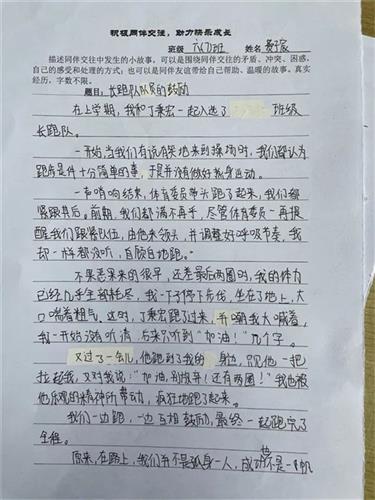 积极同伴交往，助力快乐成长
班级 六(7)班 姓名
描述同伴交往中发生的小故事，可以是围绕同伴交往的矛盾、冲突、困惑，
自己的感受和处理的方式；也可以是同伴友谊带给自己帮助、温暖的故事。真实
经历，字数不限。
题目：长跑队队员的鼓励
在上学期，我和丁秉宏一起入选了班级
长跑队。
一开始当我们有说有笑地来到操场时，我们都认为
跑步是件十分简单的事，于是并没有做好热身运动。
一声哨响结束，体育委员带头跑了起来，我们都
紧跟其后。前期，我们都满不再乎，尽管体育委员一再提
醒我们跟紧队伍，由他来领头，并调整好呼吸节奏，我
却一样都没听，自顾自地跑。
不果恶果来的很早，还差最后两圈时，我的体力
已经几乎全部耗尽，我一下子停下步伐，坐在了地上，大
口喘着粗气。这时，丁秉宏跑了过来，并嘲我大喊着，
我一开始没有听清，后来只听到“加油！”几个字。
又过了一会儿，他跑到了我的身边，只见他一把
拉起我，又对我说：“加油，别放弃！还有两圈！”我也被
他乐观的精神所带动，疯狂地跑了起来。
我们一边跑，一边互相鼓励，最终一起跑完了
全程。
原来，在路上，我们并不是孤身一人，成功也不是一帆